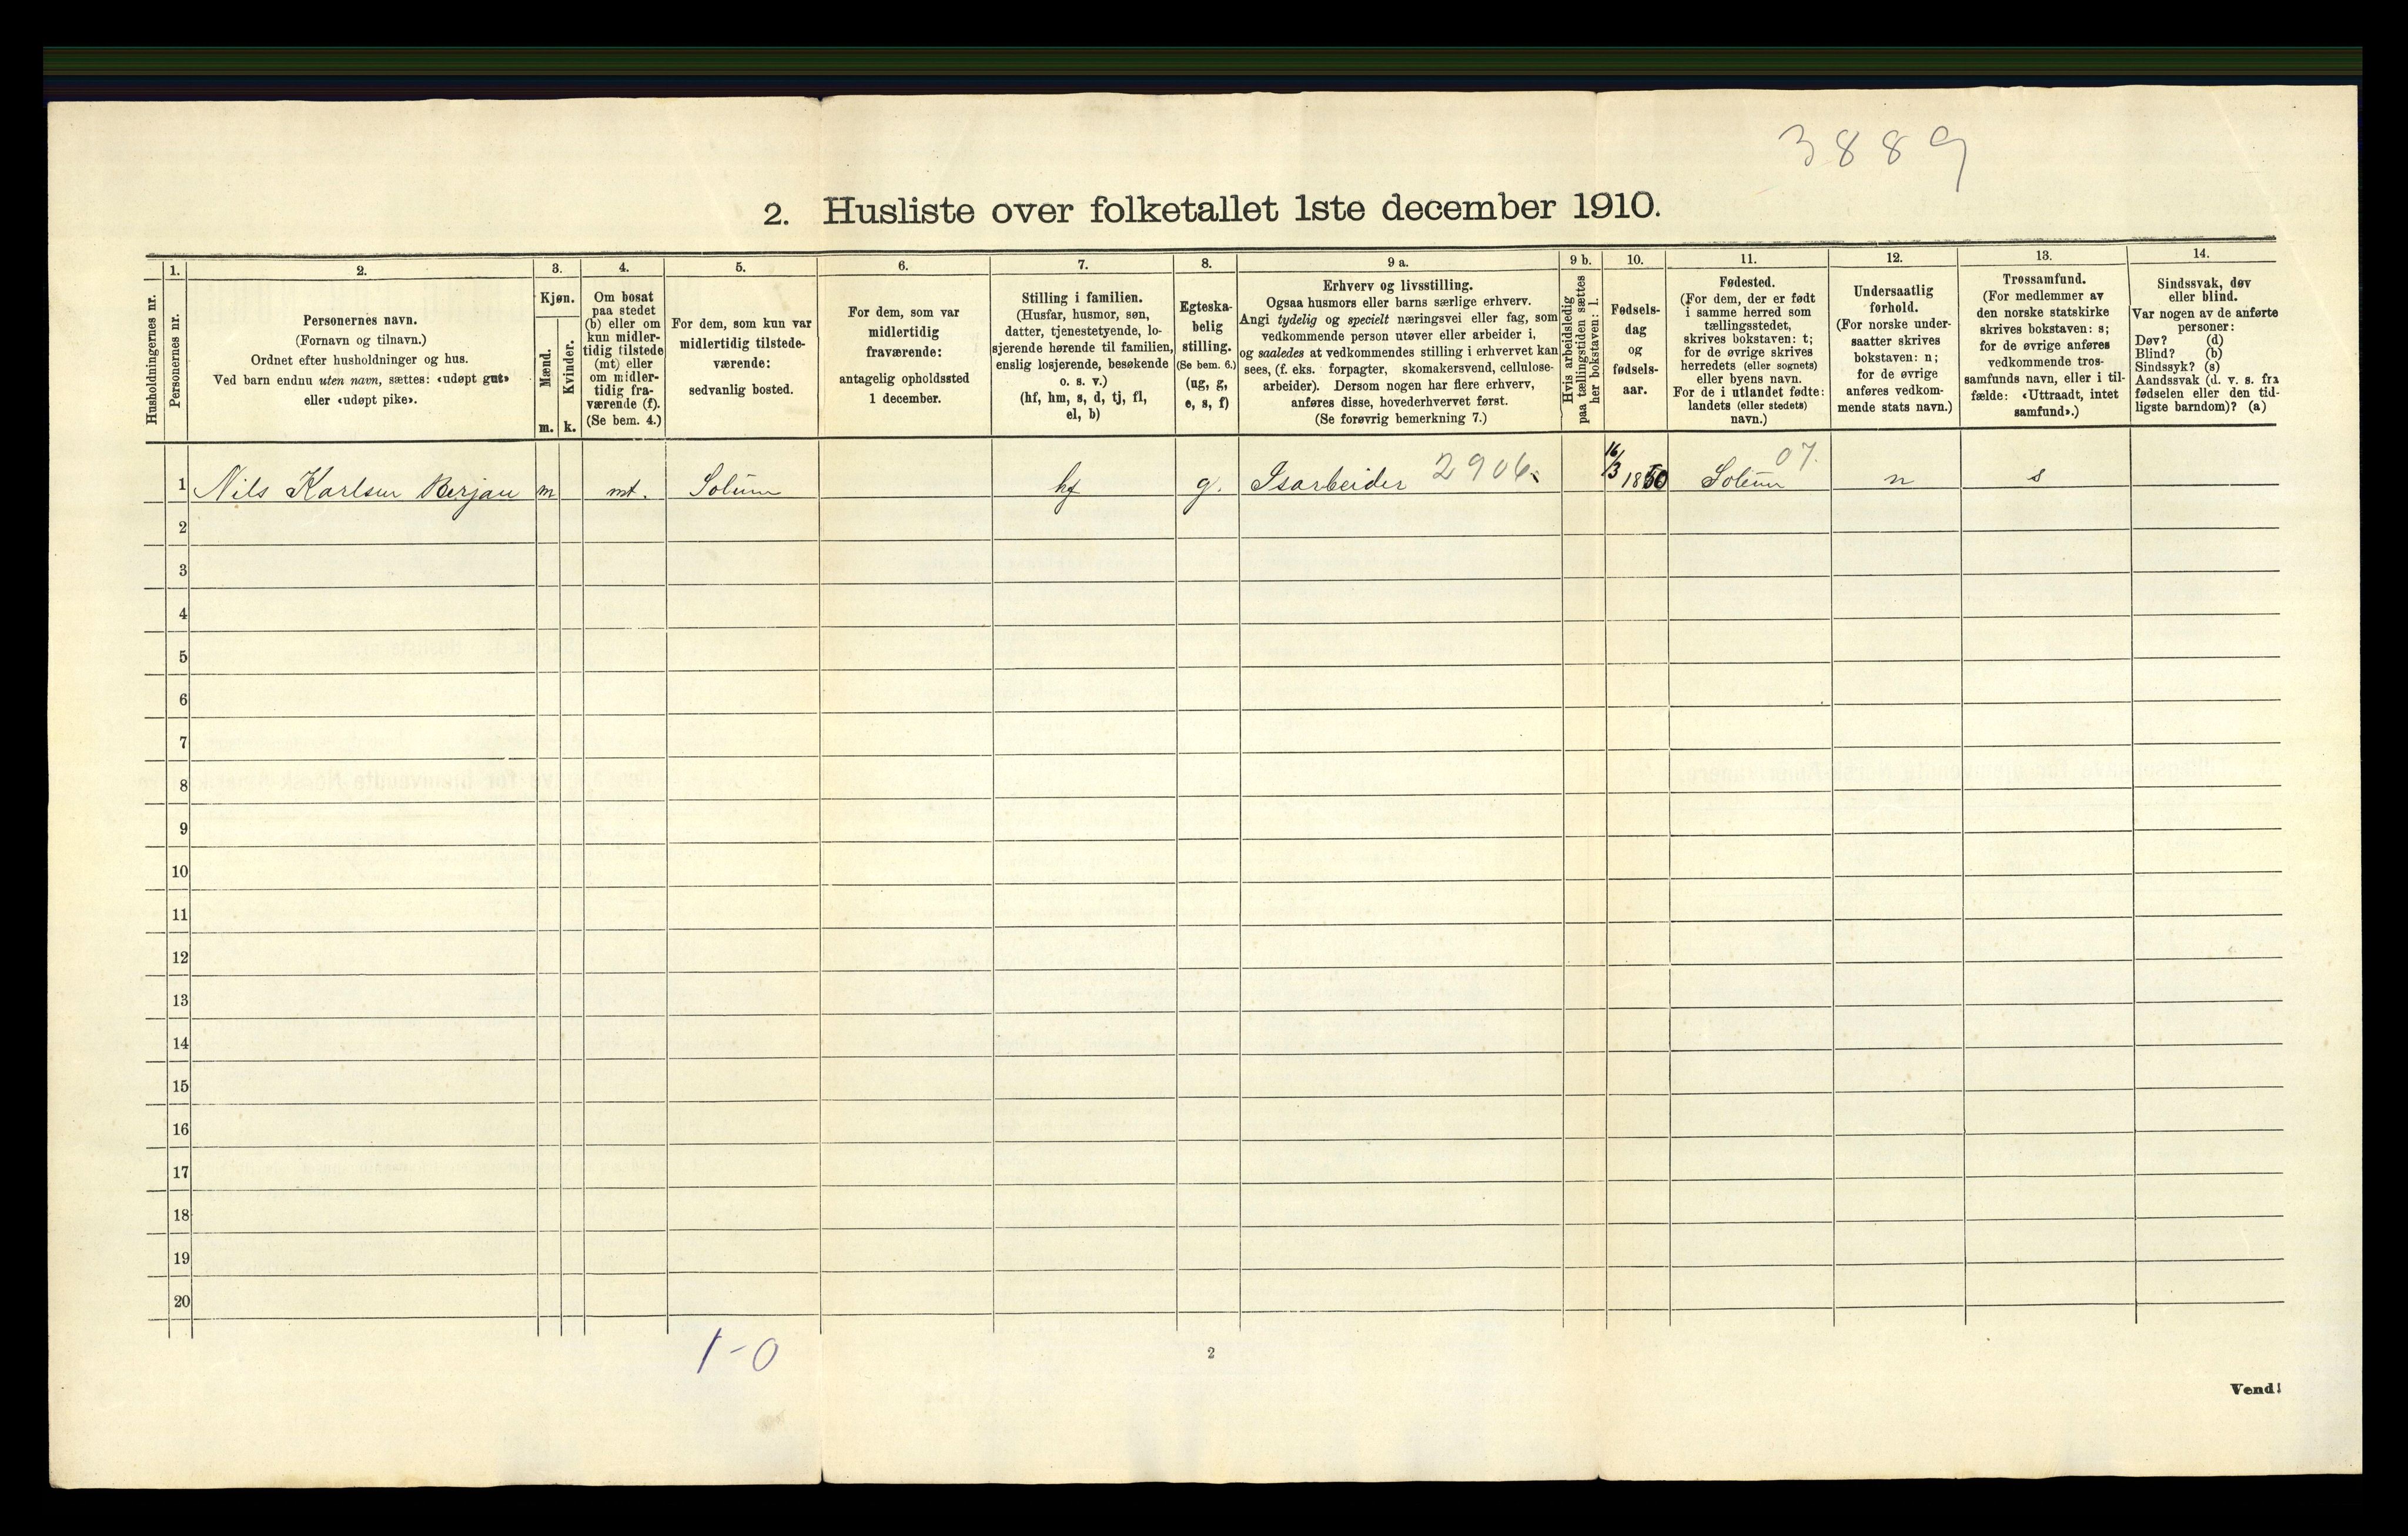 3889
2. Husliste over folketallet 1ste december 1910.
Husholdningernes nr.
1.
Personernes nr.
2.
Personernes navn.
(Fornavn og tilnavn.)
Ordnet efter husholdninger og hus.
Ved barn endnu uten navn, sættes: «udøpt gut»
eller «udøpt pike».
3.
Kjøn.
Mænd.
Kvinder.
m.
k.
4.
Om bosat
paa stedet
(b) eller om
kun midler-
tidig tilstede
(mt) eller
om midler-
tidig fra-
værende (f).
(Se bem. 4.)
5.
For dem, som kun var
midlertidig tilstede-
værende:
sedvanlig bosted.
6.
For dem, som var
midlertidig
fraværende:
antagelig opholdssted
1 december.
7.
Stilling i familien.
(Husfar, husmor, søn,
datter, tjenestetyende, lo-
sjerende hørende til familien,
enslig losjerende, besøkende
o. s. v.)
(hf, hm, s, d, tj, fl,
el, b)
8.
Egteska-
belig
stilling.
(Se bem. 6.)
(ug, g,
e, s, f)
9 a.
Erhverv og livsstilling.
Ogsaa husmors eller barns særlige erhverv.
Angi tydelig og specielt næringsvei eller fag, som
vedkommende person utøver eller arbeider i,
og saaledes at vedkommendes stilling i erhvervet kan
sees, (f. eks. forpagter, skomakersvend, cellulose-
arbeider). Dersom nogen har flere erhverv,
anføres disse, hovederhvervet først.
(Se forøvrig bemerkning 7.)
9 b.
Hvis arbeidsledig
paa tællingstiden sættes
her bokstaven: l.
10.
Fødsels-
dag
og
fødsels-
aar.
11.
Fødested.
(For dem, der er født
i samme herred som
tællingsstedet,
skrives bokstaven: t;
for de øvrige skrives
herredets (eller sognets)
eller byens navn.
For de i utlandet fødte:
landets (eller stedets)
navn.)
12.
Undersaatlig
forhold.
(For norske under-
saatter skrives
bokstaven: n;
for de øvrige
anføres vedkom-
mende stats navn.)
13.
Trossamfund.
(For medlemmer av
den norske statskirke
skrives bokstaven: s;
for de øvrige anføres
vedkommende tros-
samfunds navn, eller i til-
fælde: «Uttraadt, intet
samfund».)
14.
Sindssvak, døv
eller blind.
Var nogen av de anførte
personer:
Døv? (d)
Blind? (b)
Sindssyk? (s)
Aandssvak (d. v. s. fra
fødselen eller den tid-
ligste barndom)? (a)
1 Nils Karlsen Berjan m mt. Solum hf g. Isarbeider 2906 16/3 1850 Solum 07. n s
2
3
4
5
6
7
8
9
10
11
12
13
14
15
16
17
18
19
20
1-0
2
Vend!